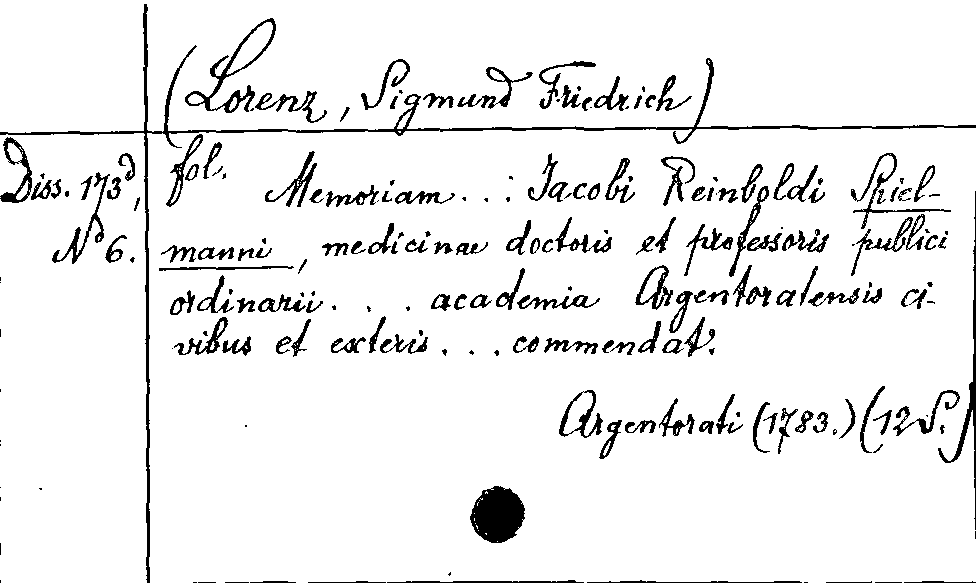 (Lorenz, Sigmund Friedrich)
Diss. 173d,
No 6.
fol.
Memoriam... Jacobi Reinboldi Spiel-
manni, medicinae doctoris et professoris publici
ordinarii... academia Argentoratensis ci-
vibus et exteris... commendat.
Argentorati (1783.) (12 S.)